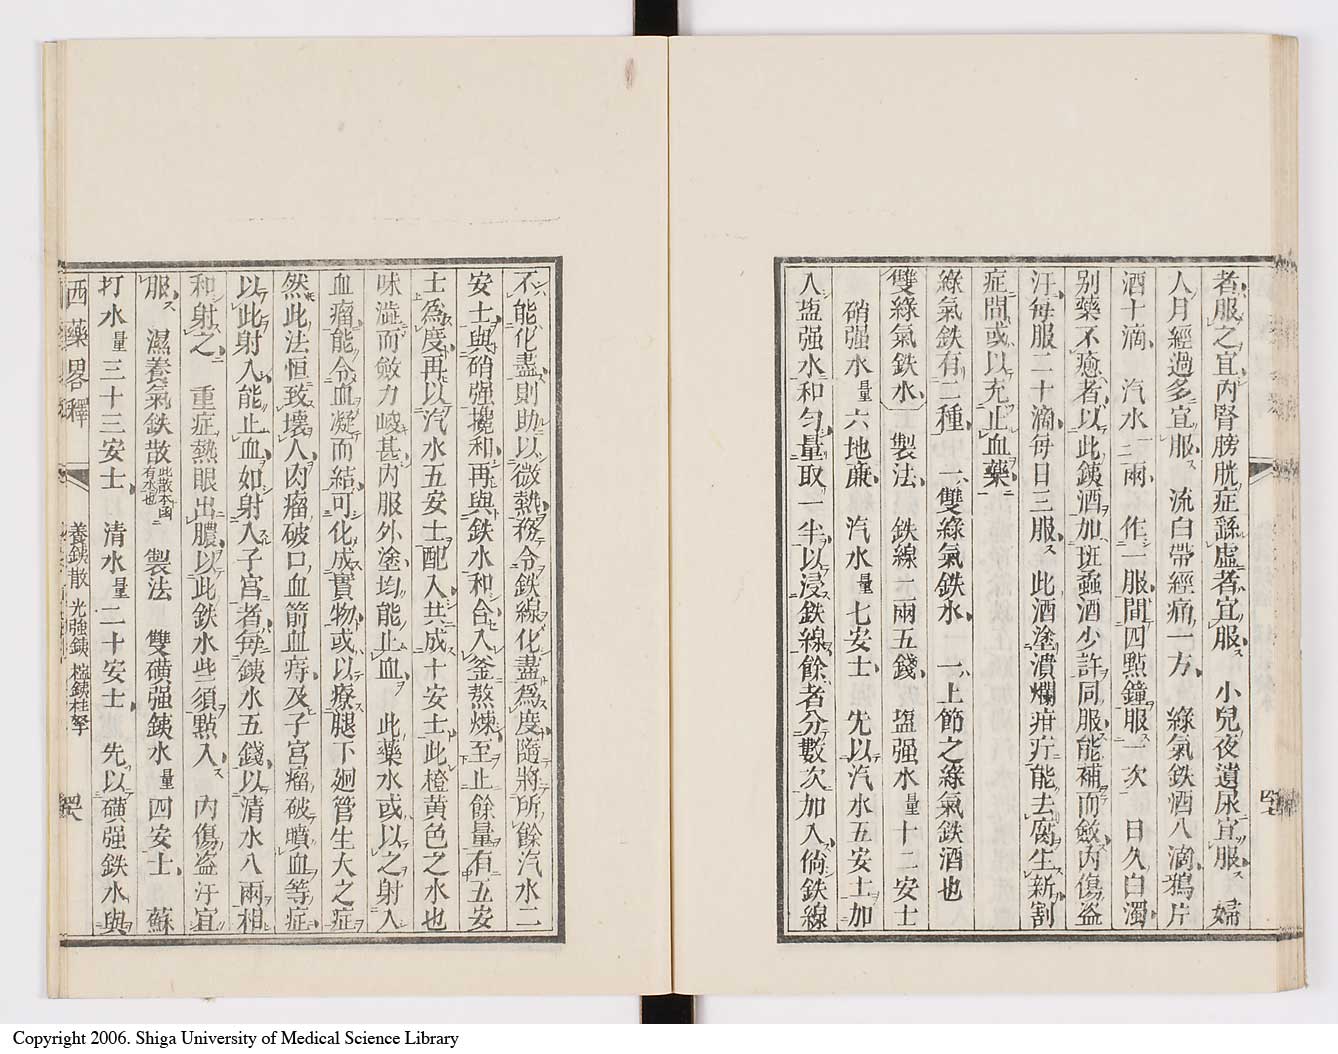 者服之宜內腎膀胱症繇虛者宜服 小兒夜遺尿宜服 婦
人月經過多宜服 流白帶經痛一方 綠氣鉄酒八滴鴉片
酒十滴 汽水二兩 作一服間四點鐘服一次 日久白濁
別藥不癒者以此銕酒加班蝥酒少許同服能補而斂內傷盗
汗每服二十滴每日三服 此酒塗潰爛疳疔能去腐生新割
症問或以充止血藥
綠氣鉄有二種 一雙綠氣鉄水 一上節之綠氣鉄酒也
雙綠氣鉄水 製法 鉄線二兩五錢 塩强水量十二安士
硝强水量六地廉 汽水量七安士 先以汽水五安士加
入塩强水和匀量取一半以浸鉄線餘者分數次加入倘鉄線
不能化盡則助以微熱務令鉄線化盡為度隨將所餘汽水二
安士與硝强攙和再與鉄水和合入釜熬煉至止餘量有五安
士為度再以汽水五安士配入共成十安士此橙黄色之水也
味澁而斂力峻甚內服外塗均能止血 此藥水或以之射入
血瘤能令血凝而結可化成實物或以療腿下廻管生大之症
然此法恒致壞人肉瘤破口血箭血痔及子宮瘤破噴血等症
以此射入能止血如射入子宮者每銕水五錢以清水八兩相
和射之 重症熱眼出膿以此鉄水些須點入 內傷盗汗宜
服 濕養氣鉄散此散本函有水也 製法 雙磺强銕水量四安士 蘇
打水量三十三安士 清水量二十安士 先以磺强鉄水與
西藥畧釋 養銕散 光強銕 檻銕桂孥